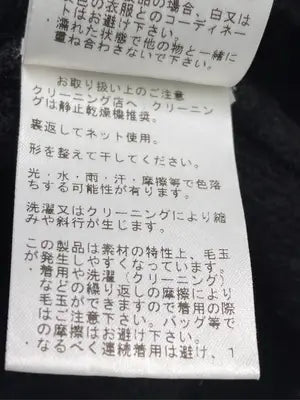 品の場合、白又は
色の衣服とのコーディネー
トはお避け下さい。
濡れた状態で他の物と一緒に
重ね合わさないで下さい。
お取り扱い上のご注意
クリーニング店へ クリーニン
グは静止乾燥機推奨。
裏返してネット使用。
形を整えて干してください。
光・水・雨・汗・摩擦等で色落
ちする可能性が有ります。
洗濯又はクリーニングにより縮
みや斜行が生じます。
この製品は素材の特性上、毛玉
が発生しやすくなっています。
・着用や洗濯(クリーニング)
などの繰り返しの摩擦により
毛玉ができますので着用の際
はご注意下さい。バッグ等で
の摩擦はお避け下さい。
・なるべく連続着用は避け、1